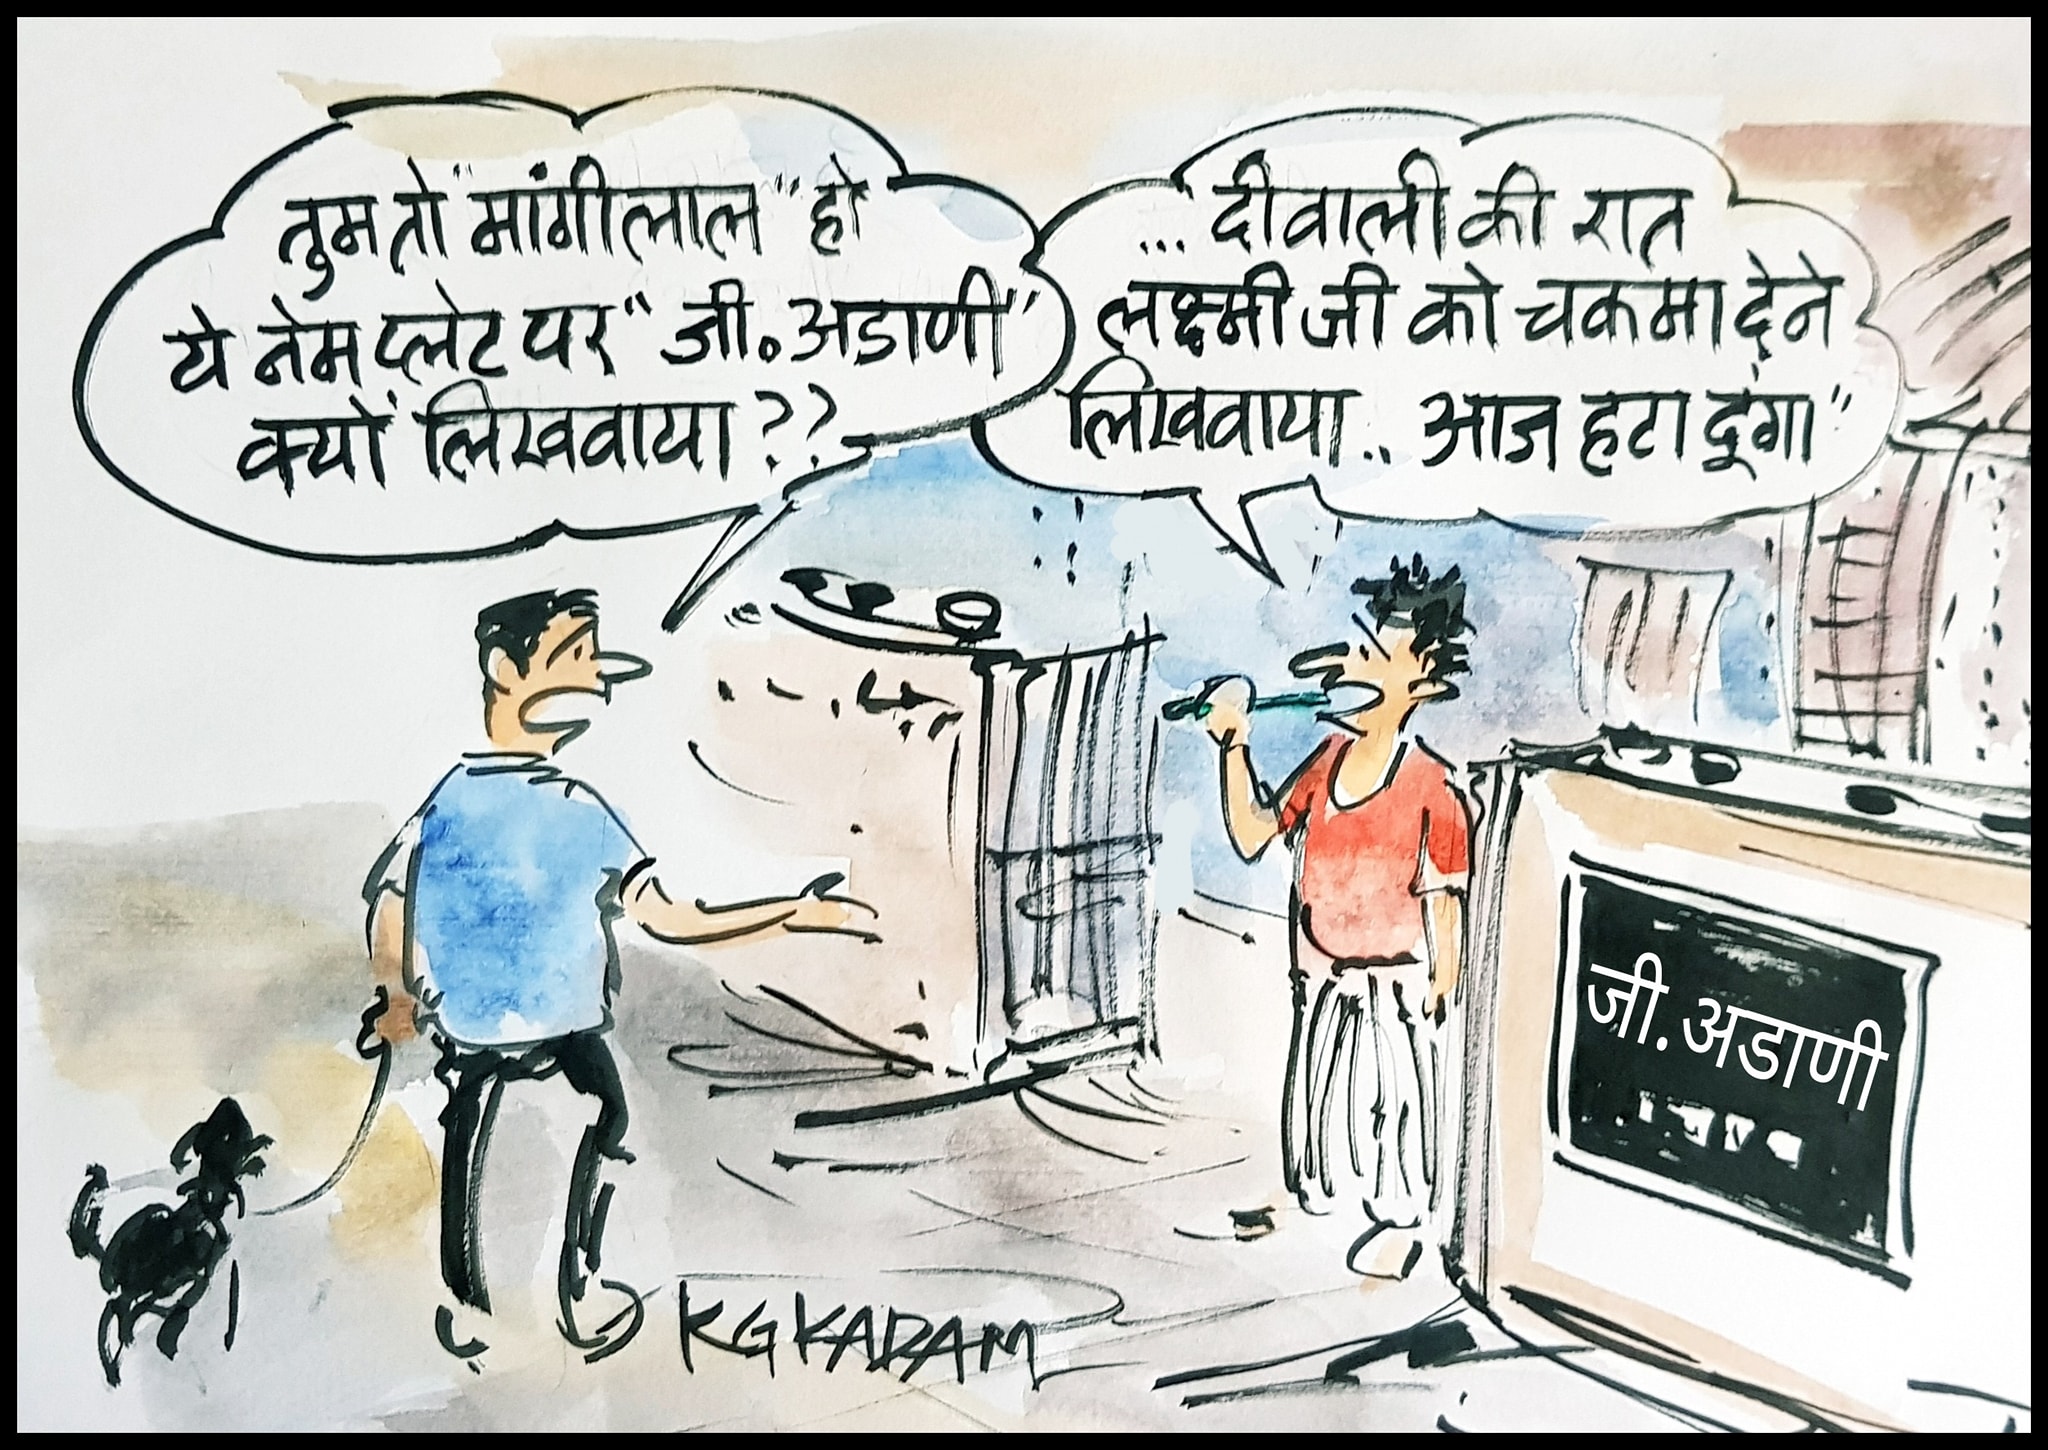 तुम तो "मांगीलाल" हो
ये नेम प्लेट पर "जी. अडाणी"
क्यों लिखवाया ??
... दीवाली की रात
लक्ष्मी जी को चकमा देने
लिखवाया .. आज हटा दूंगा"
जी. अडाणी
KGKADAM